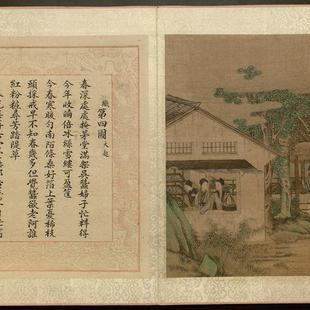 織第四圖 大起
春深處處掩茅堂滿架吳蠶婦子忙料得
今年收繭倍冰絲雪縷可盈筐
今春寒暖勻南陌條桑好箔上葉憂稀枝
頭採戒早不知春幾多但覺蠶欲老阿誰
紅粉粧尋芳踏隄草